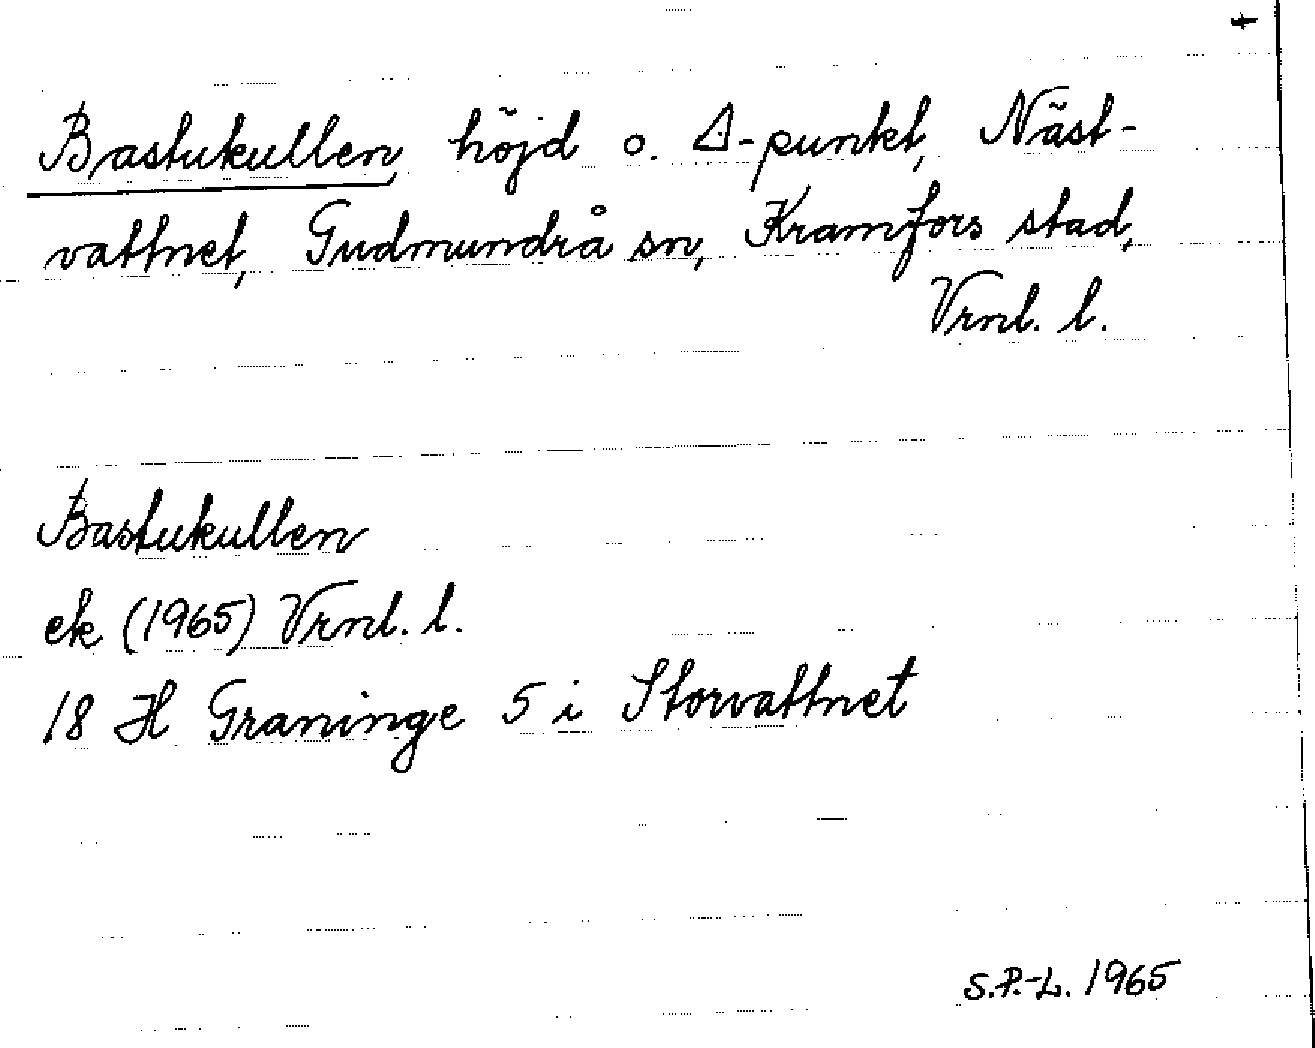 Bastukullen, höjd o. Δ-punkt, Näst-
vattnet, Gudmundrå sn, Kramfors stad,
Vrnl. l.
Bastukullen
ek (1965) Vrnl. l.
18 H Graninge 5 i Storvattnet
S.P.-L. 1965